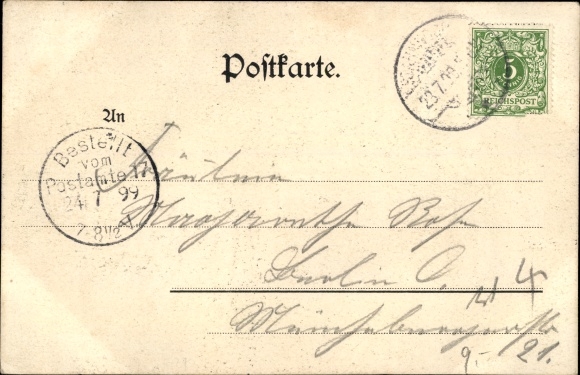 Postkarte.
5
REICHSPOST
23.7.99
An
Bestellt
vom
Postamte 17
24 7 99
7-8½V.
Fräulein
Margarethe Rose
Berlin O.
Münchebergerstr
21.